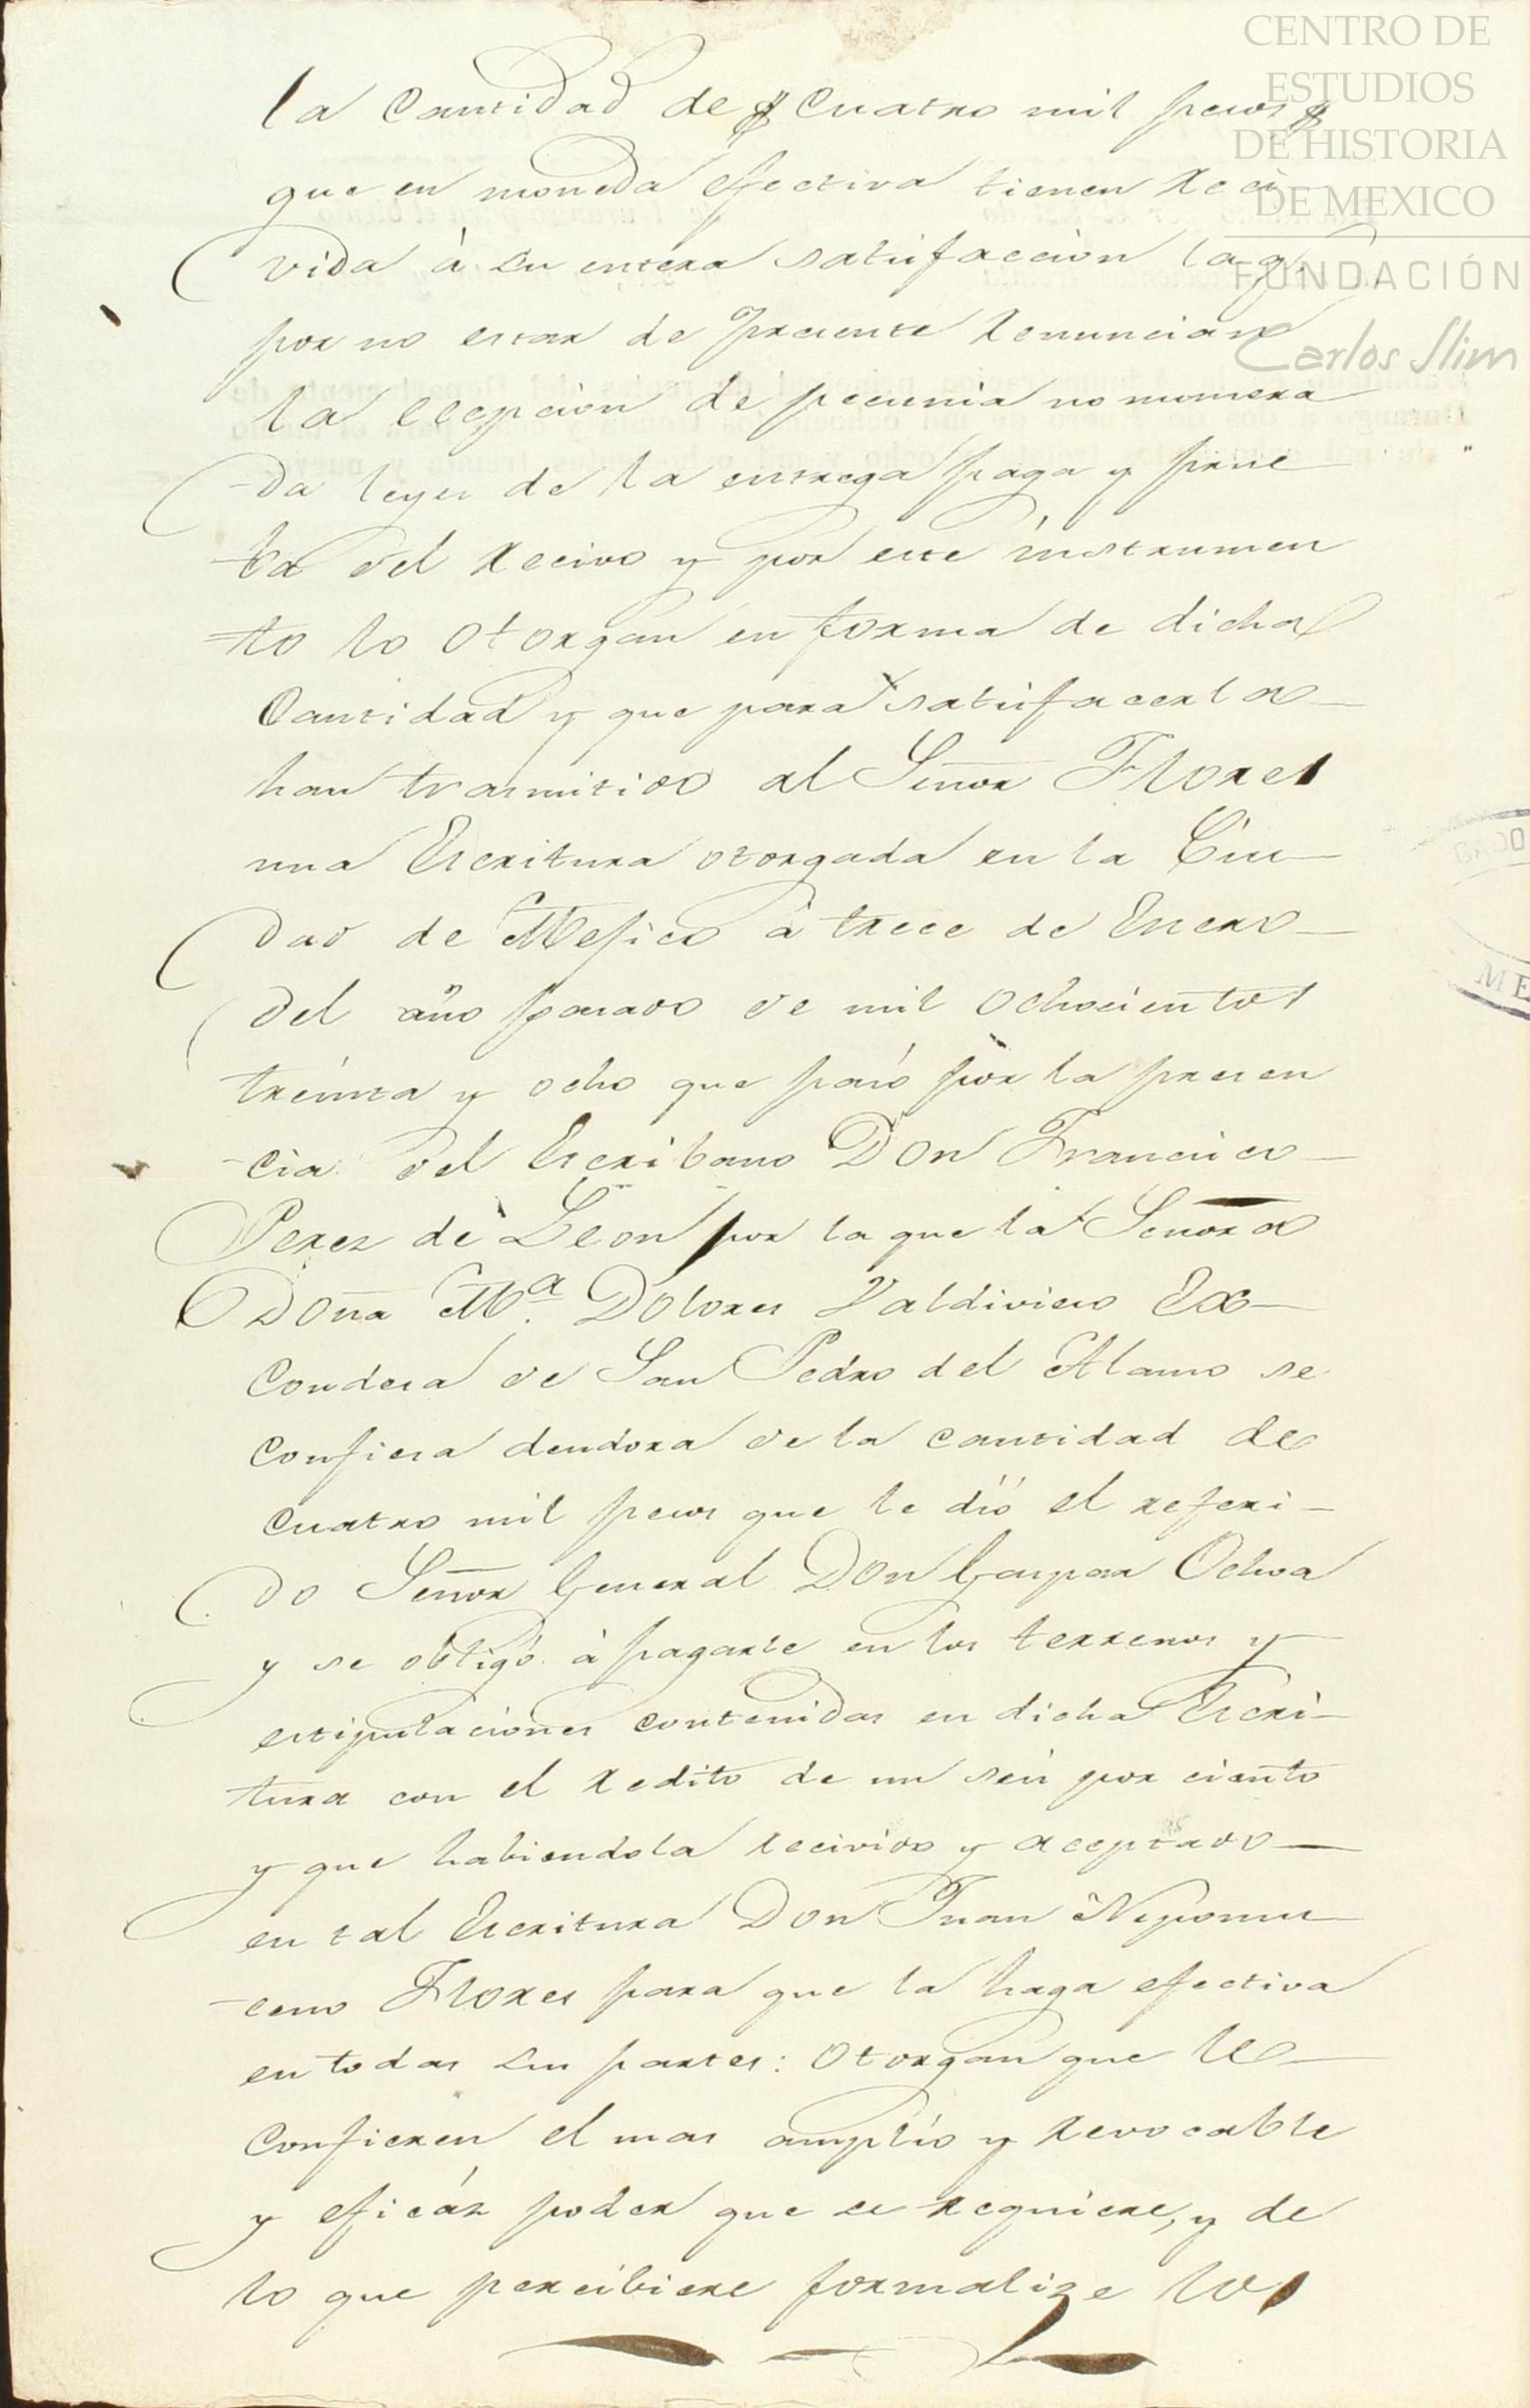 CENTRO DE
ESTUDIOS
DE HISTORIA
DE MEXICO
FUNDACIÓN
Carlos Slim
la Cantidad de $ Cuatro mil pesos $
que en moneda efectiva tienen reci
vida à su entera satisfaccion la q.
por no estar de presente renuncian
la ecepcion de pecunia no numera
da leyes de la entrega paga y prue
ba del recivo y por este instrumen
to lo otorgan en forma de dicha
Cantidad y que para satisfacerla
han trasmitido al Señor Flores
una Escritura otorgada en la Ciu
dad de Mejico à trece de Enero
del año pasado de mil ochocientos
treinta y ocho que pasó por la presen
cia del Escribano Don Francisco
Perez de Leon por la que la Señora
Doña Ma. Dolores Valdivieso Ex
Condesa de San Pedro del Alamo se
confiesa deudora de la cantidad de
cuatro mil pesos que le dió el referi
do Señor General Don Gaspar Ochoa
y se obligó à pagarle en los terrenos y
estipulaciones contenidas en dicha Escri
tura con el redito de un seis por ciento
y que habiendola recivido y aceptado
en tal Escritura Don Juan Nepomu
ceno Flores para que la haga efectiva
en todas sus partes: otorgan que le
confieren el mas amplio y revocable
y eficáz poder que se requiere, y de
lo que percibiere formalize los